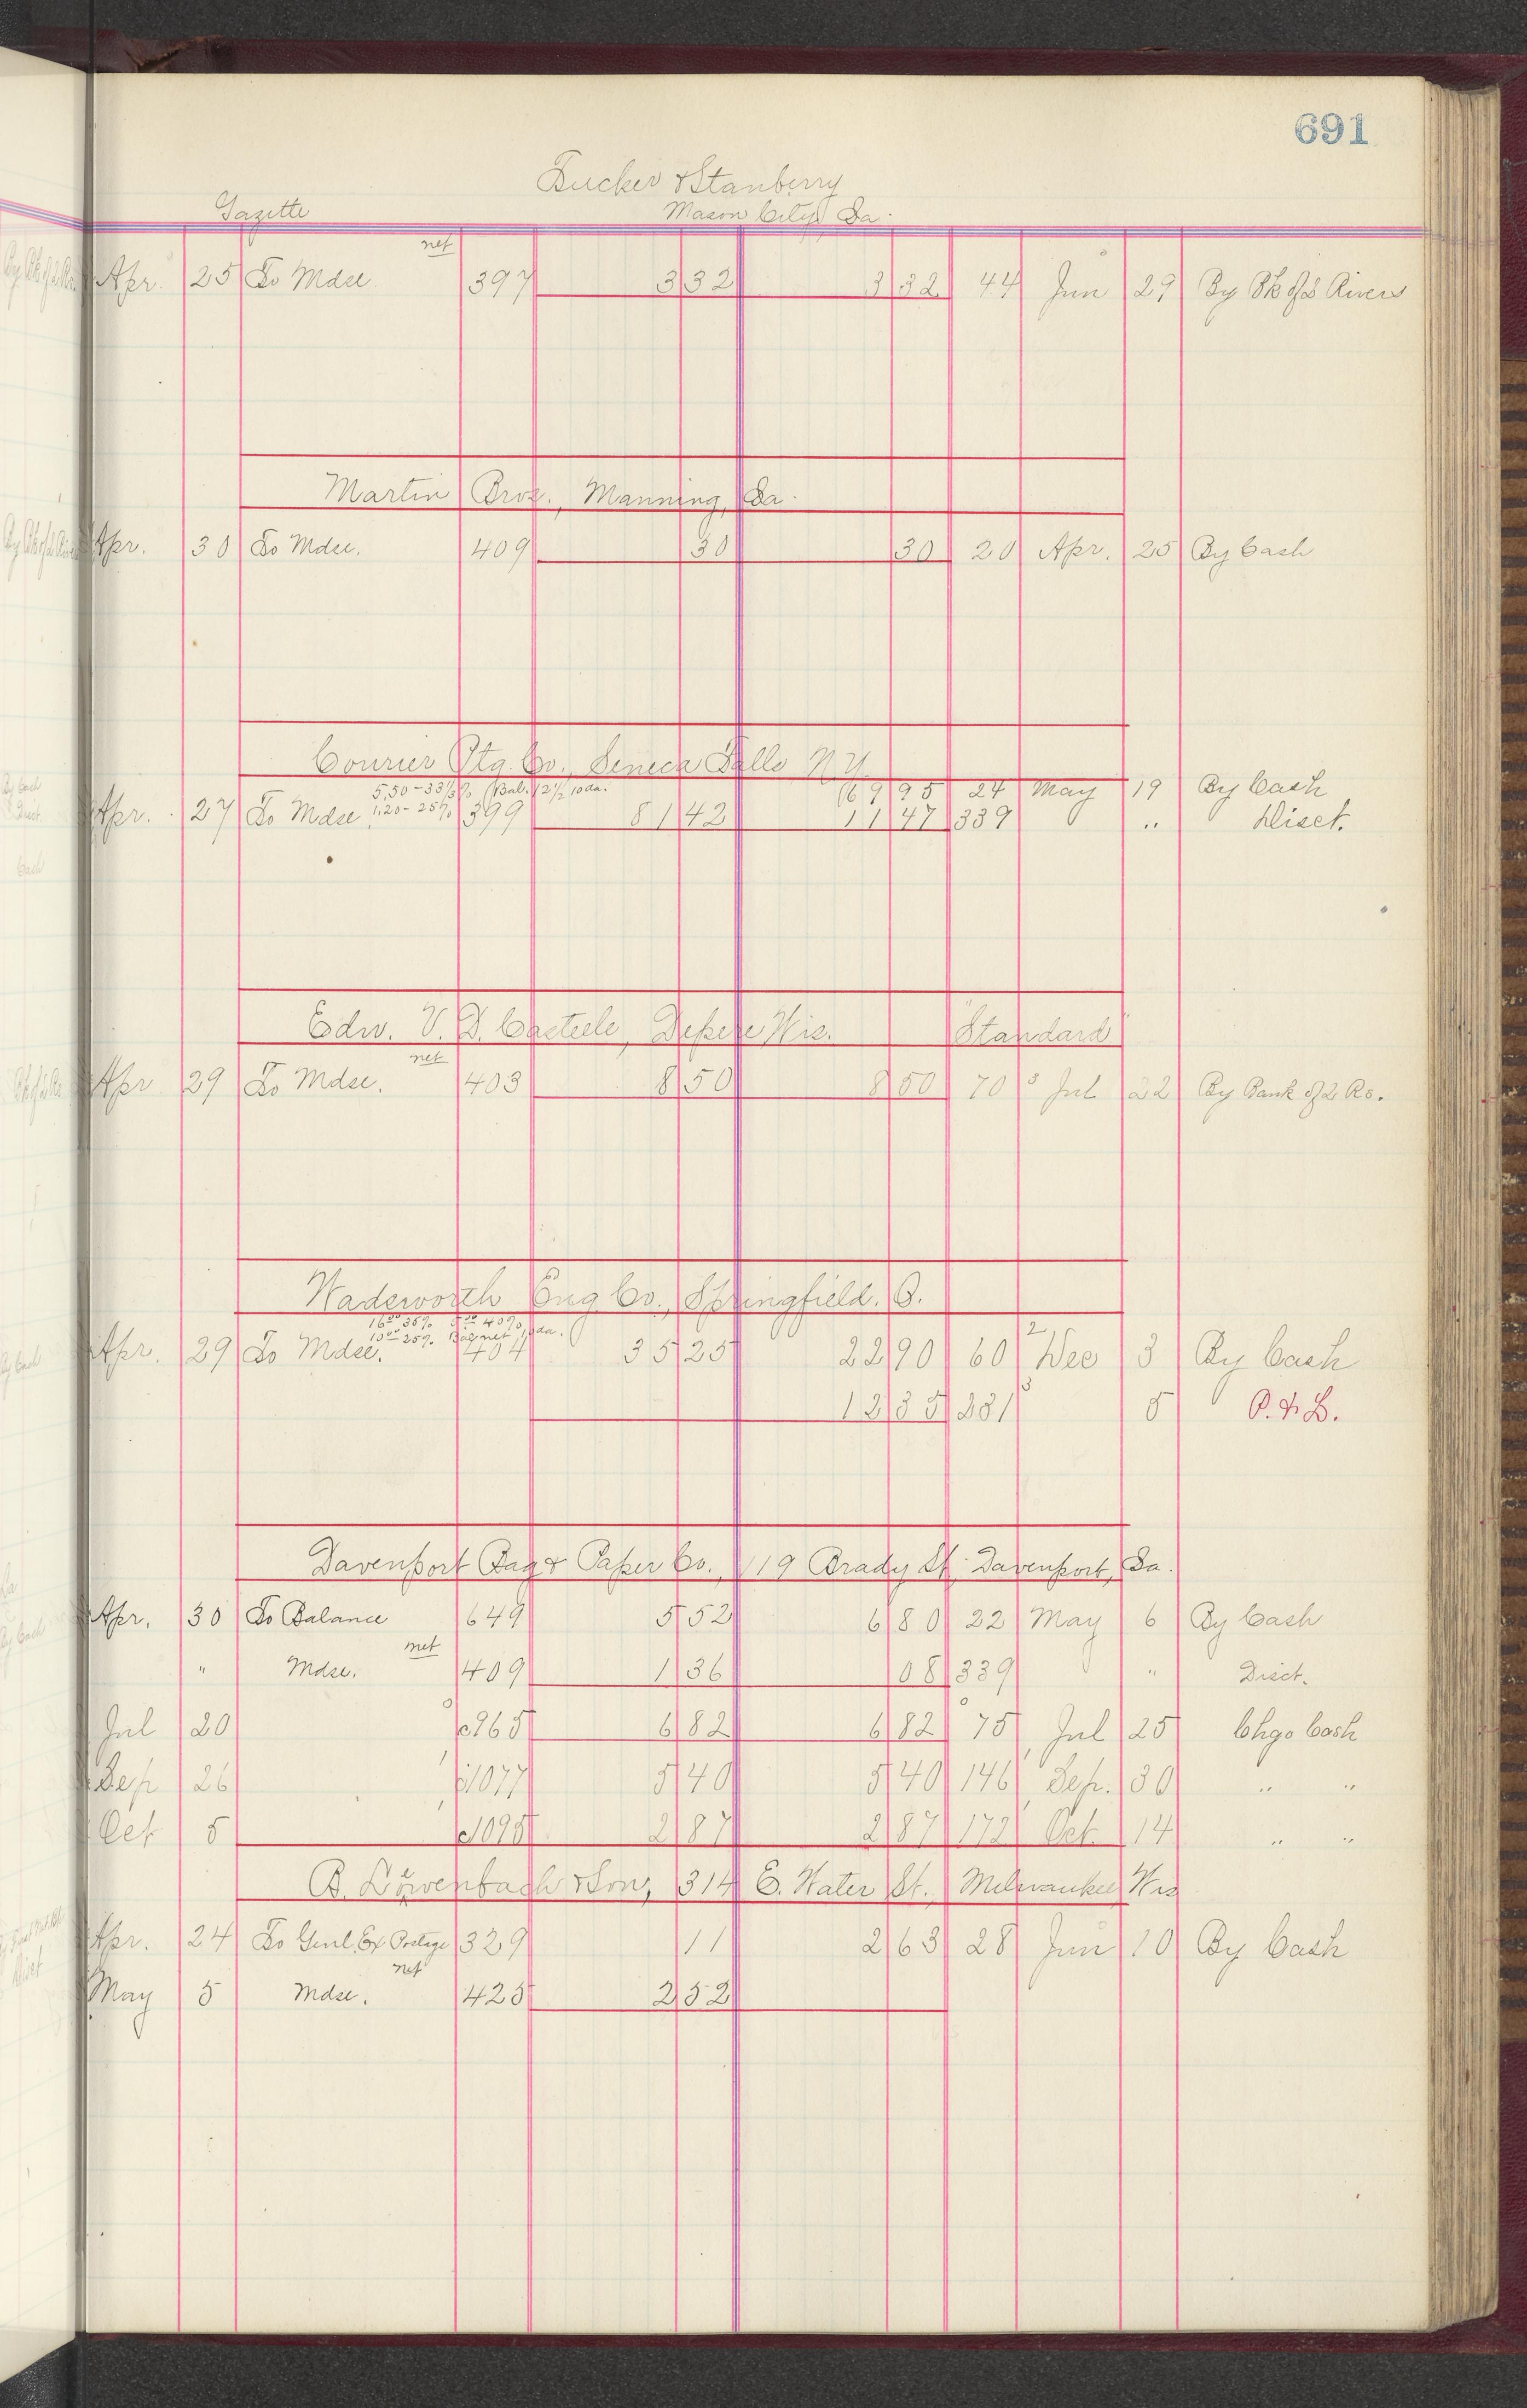 691
Tucker & Stanberry
Gazette Mason City, Ia.
net
Apr. 25 To Mdse 397 3 32 3 32 44 Jun 29 By Bk of 2 Rivers
Martin Bros., Manning, Ia.
Apr. 30 To Mdse. 409 30 30 20 Apr. 25 By Cash
Courier Ptg. Co., Seneca Falls N.Y.
5.50 - 33 1/3% (Bal. (2 1/2 10 da. 69 95 24 May 19 By Cash
Apr. 27 To Mdse, 1.20 - 25% 399 81 42 11 47 339 " Disct.
Edw. V. D. Casteele, Depere Wis. "Standard"
net
Apr 29 To Mdse. 403 8 50 8 50 70 Jul 22 By Bank of 2 Rs.
Wadsworth Eng Co., Springfield. O.
16.00 35% 5.00 40%
10.00 25% Bal net 10 da.
Apr. 29 To Mdse. 404 35 25 22 90 60 Dec 3 By Cash
12 35 231 5 P. & L.
Davenport Bag & Paper Co., 119 Brady St. Davenport, Ia.
Apr. 30 To Balance 649 5 52 6 80 22 May 6 By Cash
net
" Mdse. 409 1 36 08 339 " Disct.
Jul 20 c965 6 82 6 82 75 Jul 25 Chgo Cash
Sep 26 c1077 5 40 5 40 146 Sep. 30 " "
Oct 5 c1095 2 87 2 87 172 Oct. 14 " "
B. Löwenbach & Son, 314 E. Water St., Milwaukee Wis
Apr. 24 To Genl. Ex Postage 329 11 2 63 28 Jun 10 By Cash
net
May 5 Mdse. 425 2 52